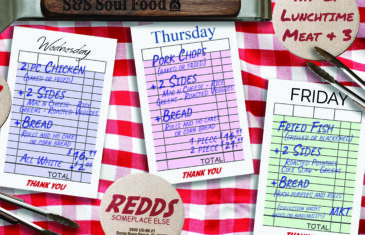 S&S Soul Food
LUNCHTIME
MEAT & 3
Wednesday
2 PC CHICKEN
(BAKED OR FRIED)
+2 SIDES
MAC N CHEESE - RICE
GREENS - ROASTED VEGGIES
+BREAD
ROLLS AND HO CAKES
OR CORN BREAD
ALL WHITE +$2.00
TOTAL
THANK YOU
Thursday
PORK CHOPS
(BAKED OR FRIED)
+2 SIDES
MAC N CHEESE - RICE
GREENS - ROASTED VEGGIES
+BREAD
ROLLS AND HO CAKES
OR CORN BREAD
1 PIECE
2 PIECE
TOTAL
THANK YOU
FRIDAY
FRIED FISH
(GRILLED OR BLACKENED)
+2 SIDES
ROASTED POTATOES
COLE SLAW - GREENS
+BREAD
HUSH PUPPIES AND ROLLS
MKT
TOTAL
THANK YOU
REDDS
SOMEPLACE ELSE